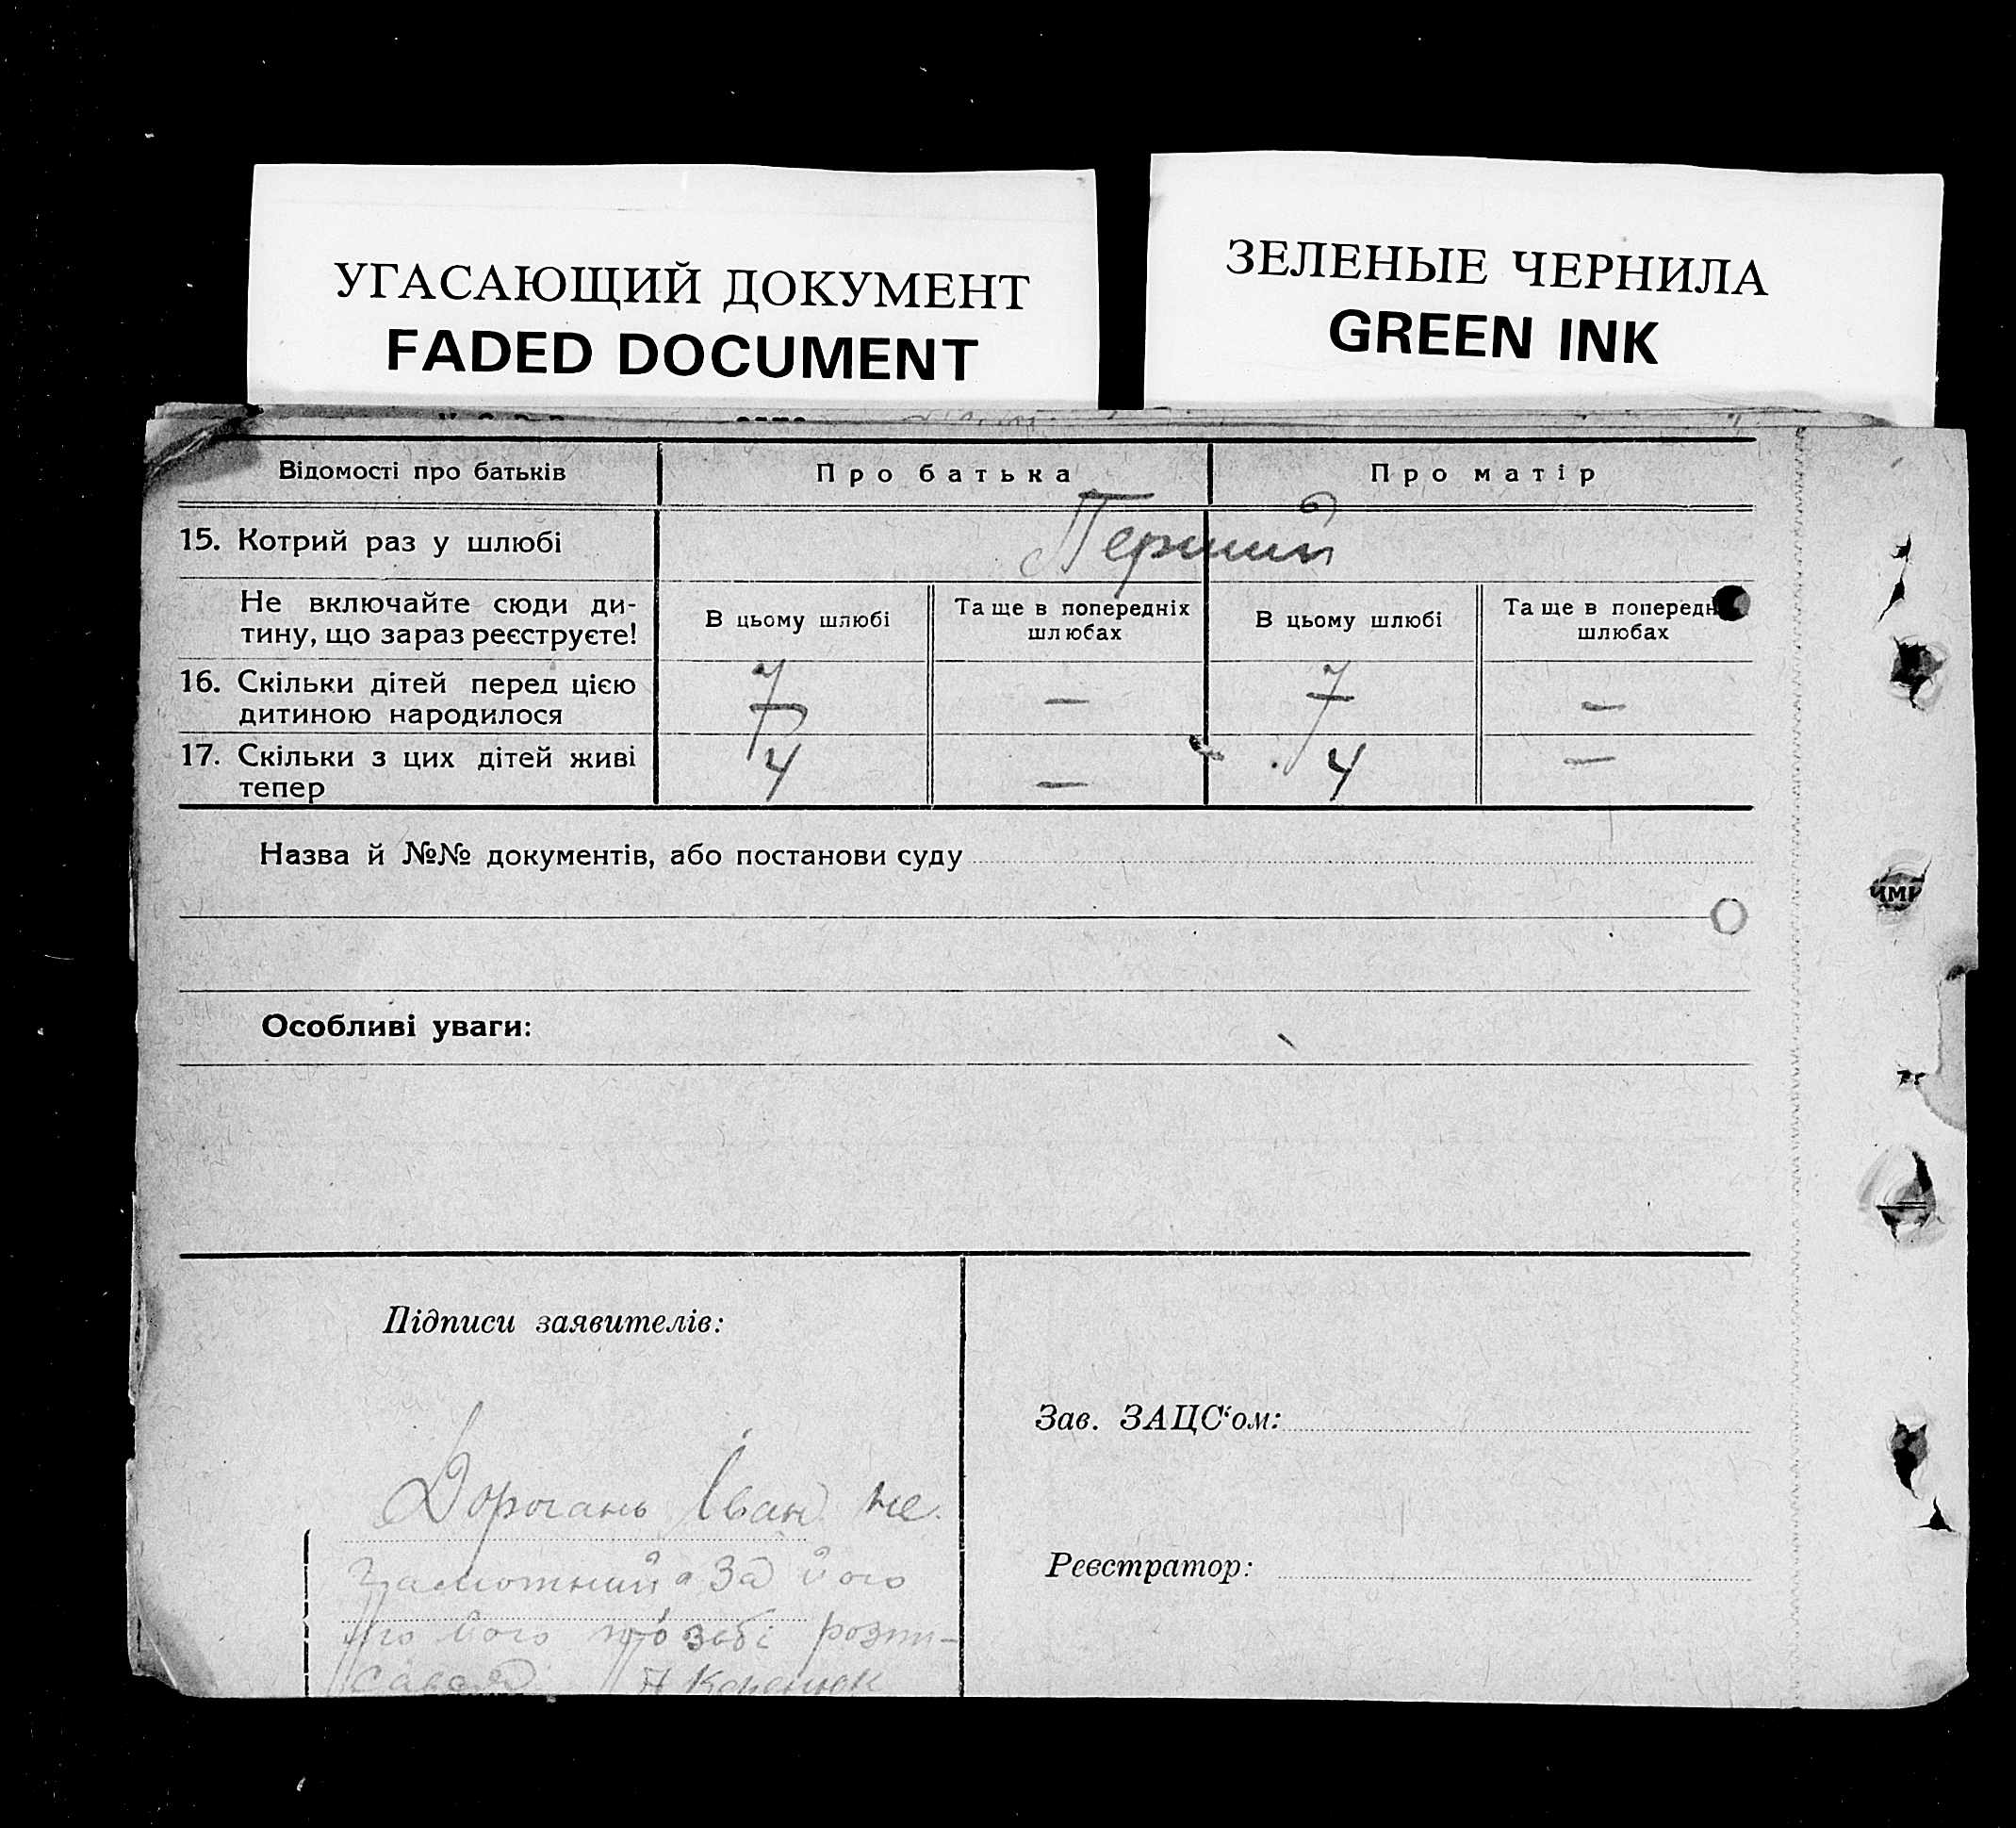 УГАСАЮЩИЙ ДОКУМЕНТ
FADED DOCUMENT
ЗЕЛЕНЫЕ ЧЕРНИЛА
GREEN INK
Відомості про батьків Про батька Про матір
15. Котрий раз у шлюбі Перший
Не включайте сюди ди-
тину, що зараз реєструєте!
В цьому шлюбі
Та ще в попередніх
шлюбах
В цьому шлюбі
Та ще в попередн
шлюбах
16. Скільки дітей перед цією
дитиною народилося
7 — 7 —
17. Скільки з цих дітей живі
тепер
4 — 4 —
Назва й №№ документів, або постанови суду
Особливі уваги:
Підписи заявителів:
Дорогань Іван не
За його
розпи-
Зав. ЗАЦС‘ом:
Реєстратор: